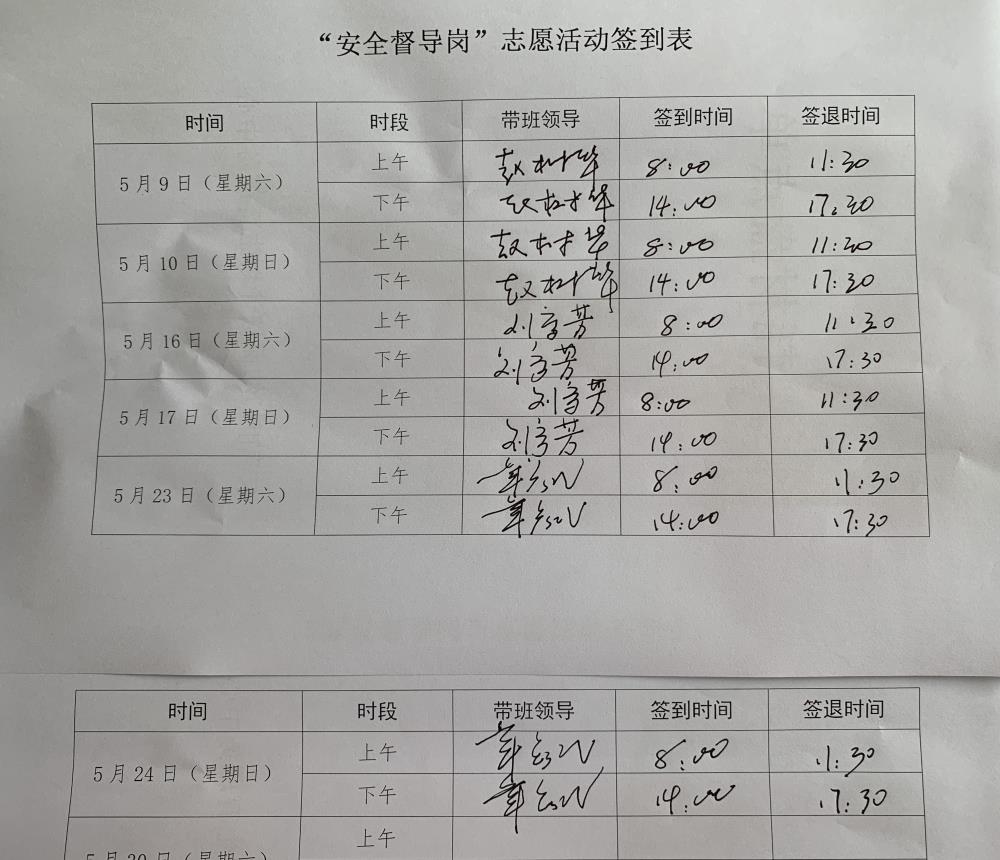 “安全督导岗”志愿活动签到表
时间 时段 带班领导 签到时间 签退时间
5月9日（星期六） 上午 赵树华 8:00 11:30
下午 赵树华 14:00 17:30
5月10日（星期日） 上午 赵树华 8:00 11:30
下午 赵树华 14:00 17:30
5月16日（星期六） 上午 刘 芳 8:00 11:30
下午 刘 芳 14:00 17:30
5月17日（星期日） 上午 刘 芳 8:00 11:30
下午 刘 芳 14:00 17:30
5月23日（星期六） 上午 8:00 11:30
下午 14:00 17:30
时间 时段 带班领导 签到时间 签退时间
5月24日（星期日） 上午 8:00 11:30
下午 14:00 17:30
5月30日（星期六） 上午